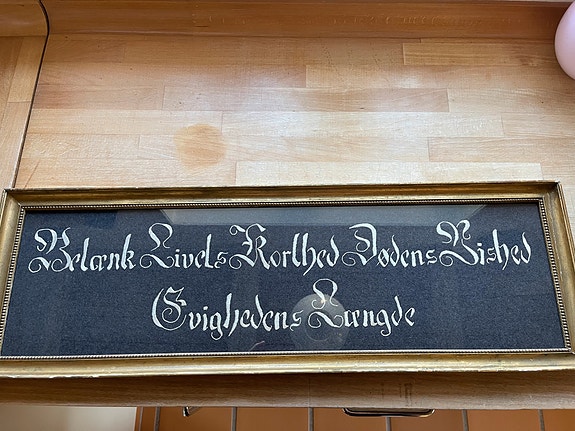 Betænk Livets Korthed Dødens Vished
Evighedens Længde